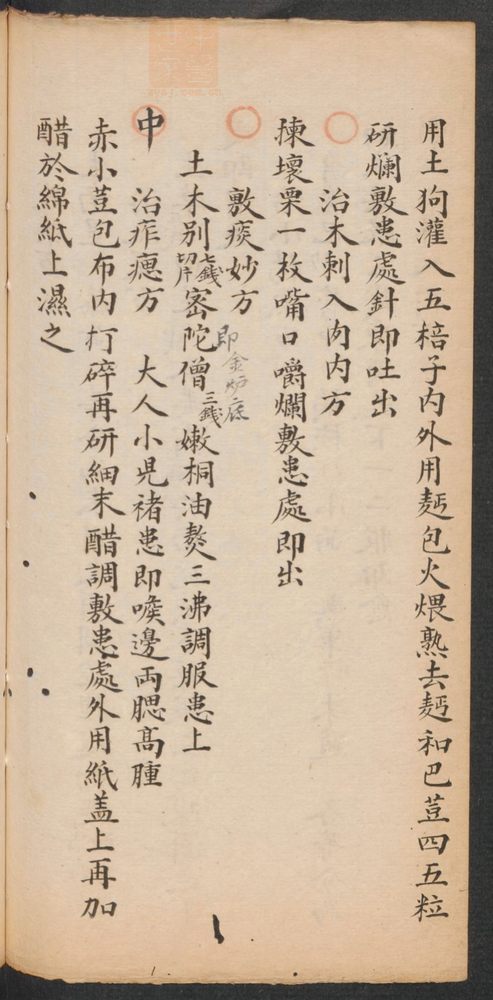 用土狗灌入五棓子內外用麪包火煨熟去麪和巴荳四五粒
研爛敷患處針即吐出
治木刺入肉內方
揀壞栗一枚嘴口嚼爛敷患處即出
敷瘼妙方
土木別七錢切片密陀僧三錢嫩桐油熬三沸調服患上
即金炉底
中 治痄瘜方 大人小児禇患即喉邊両腮髙腫
赤小荳包布內打碎再研細末醋調敷患處外用紙盖上再加
醋於綿紙上濕之